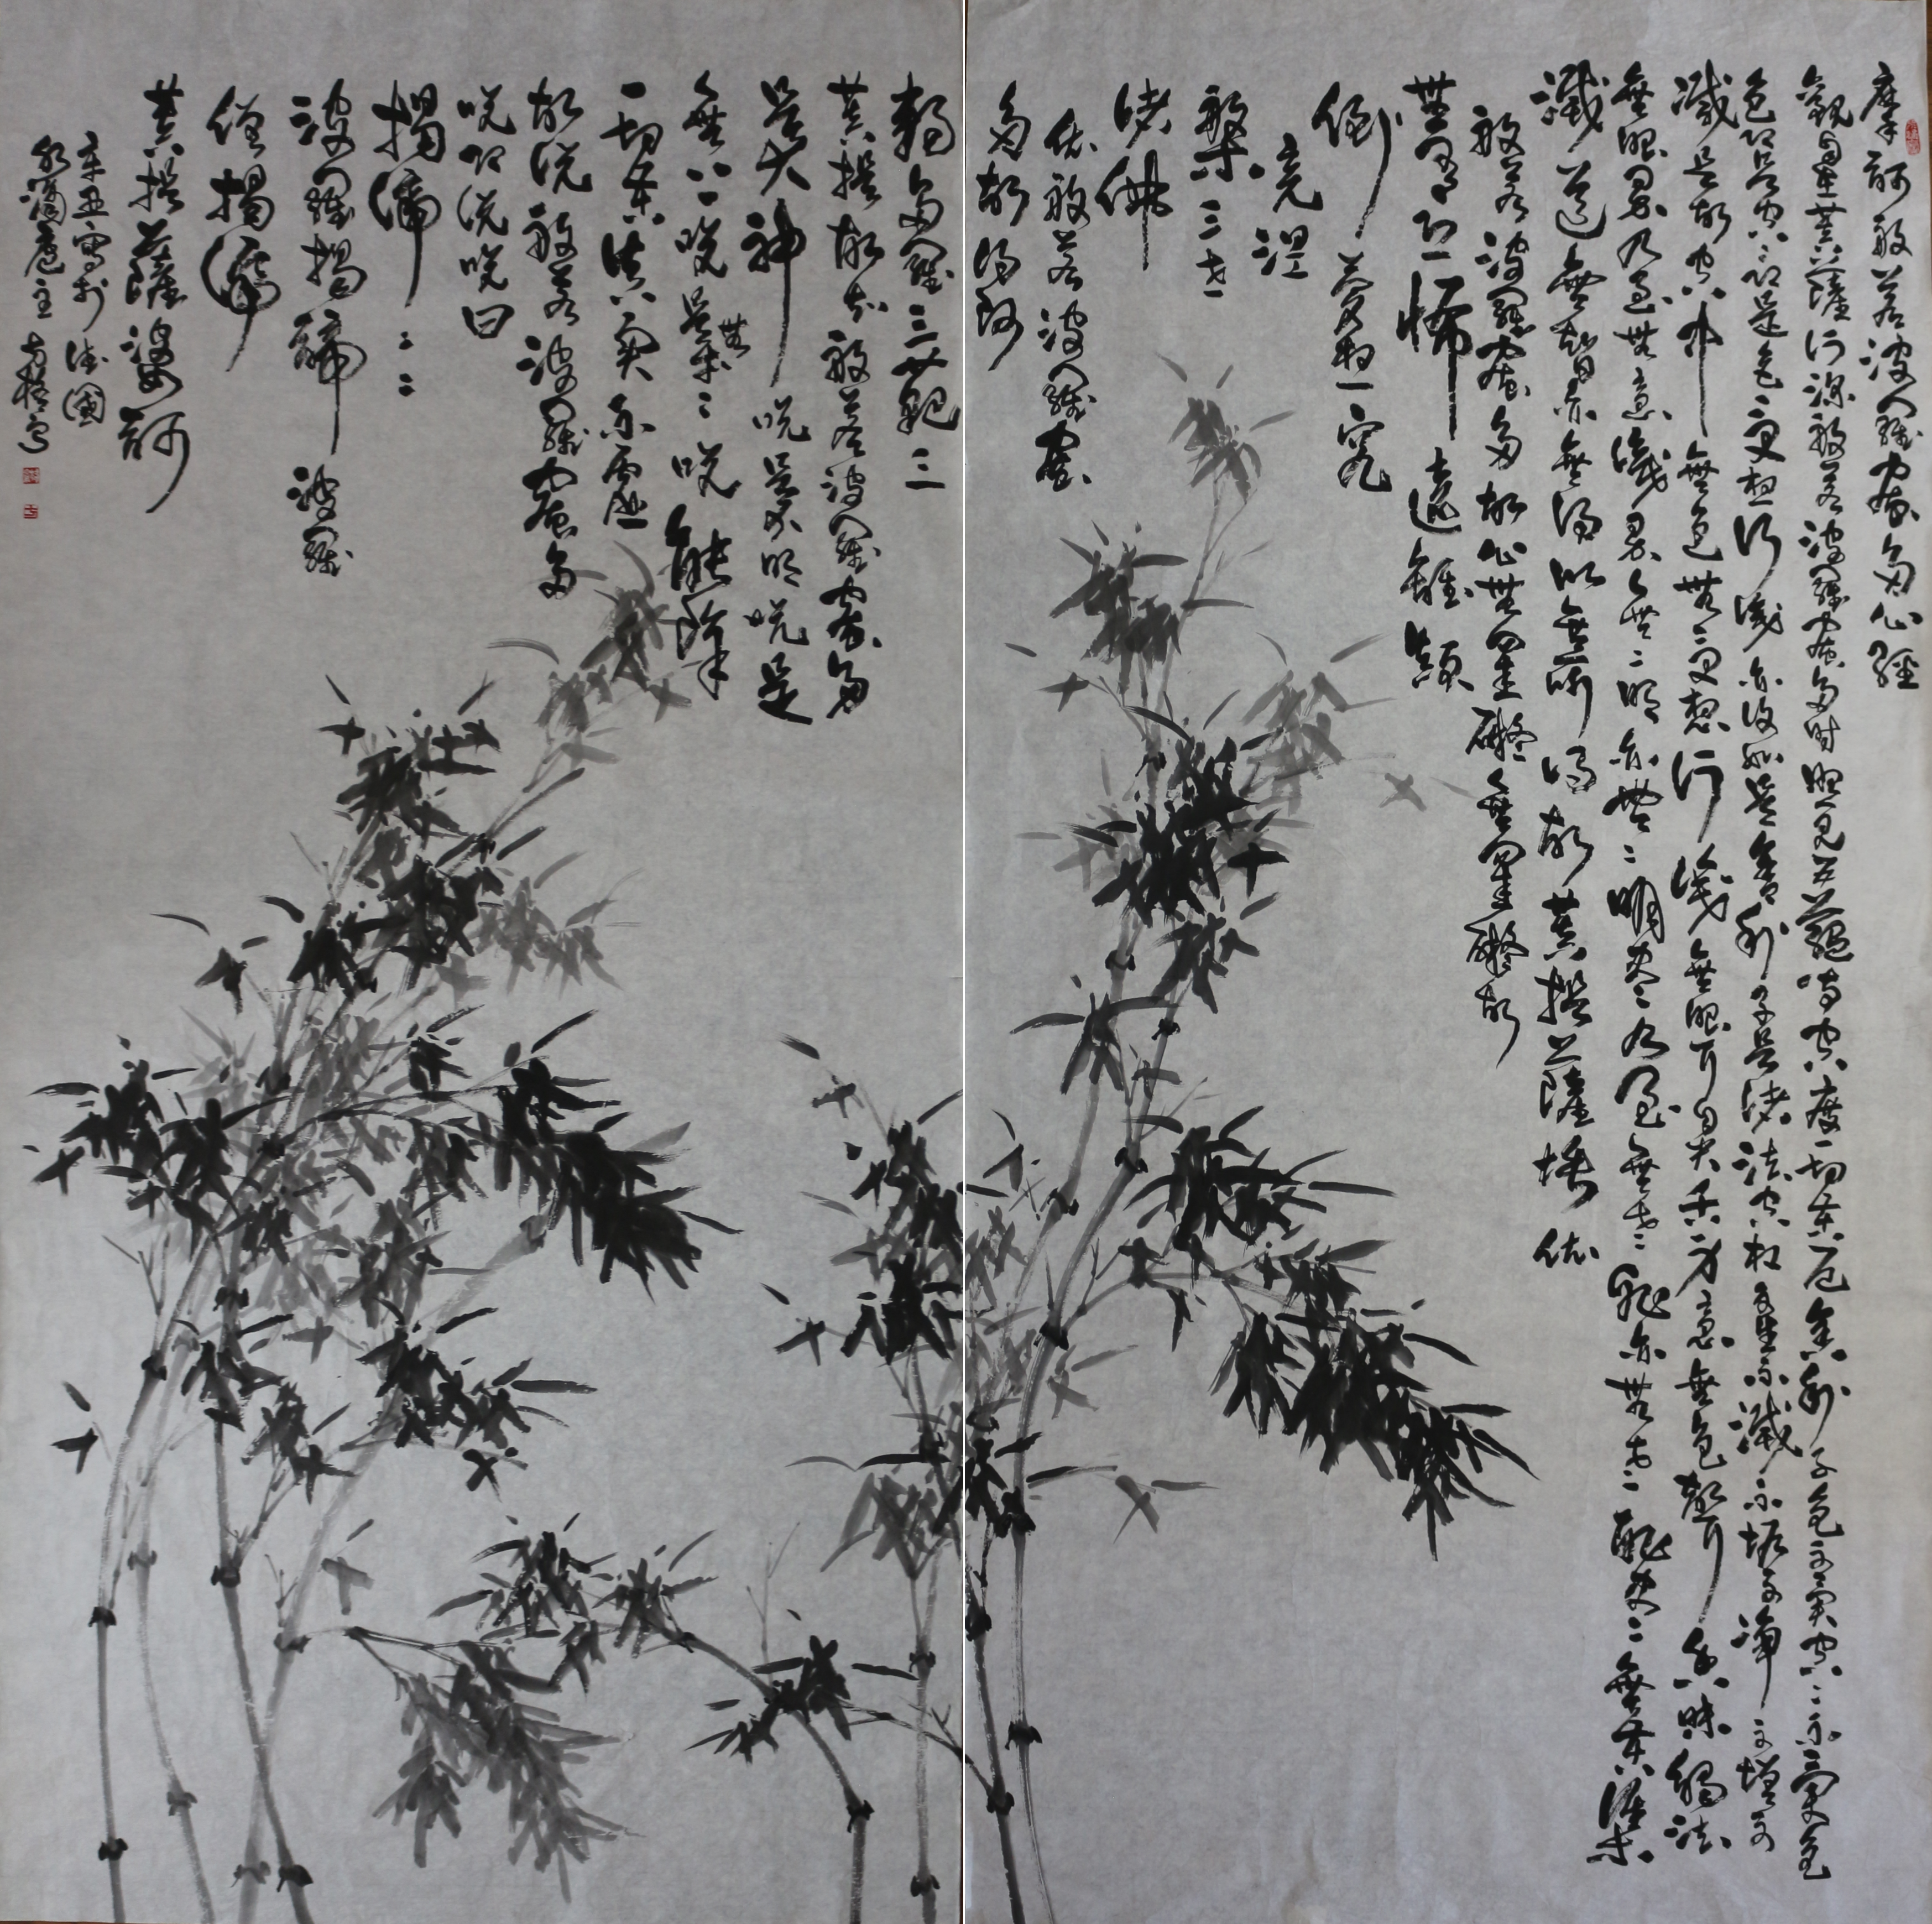 摩訶般若波羅蜜多心經
觀自在菩薩行深般若波羅蜜多時照見五蘊皆空度一切苦厄舍利子色不異空空不異色
色即是空空即是色受想行識亦復如是舍利子是諸法空相不生不滅不垢不淨不增不
減是故空中無色無受想行識無眼耳鼻舌身意無色聲香味觸法
無眼界乃至無意識界無無明亦無無明盡乃至無老死亦無老死盡無苦集
滅道無智亦無得以無所得故菩提薩埵依
般若波羅蜜多故心無罣礙無罣礙故
無有恐怖遠離顛
倒夢想究
竟涅
槃三世
諸佛
依般若波羅蜜
多故得阿
耨多羅三藐三
菩提故知般若波羅蜜多
是大神咒是大明咒是
無上咒是無等等咒能除
一切苦真實不虛
故說般若波羅蜜多
咒即說咒曰
揭諦揭諦
波羅揭諦波羅
僧揭諦
菩提薩婆訶
辛丑寫於德國